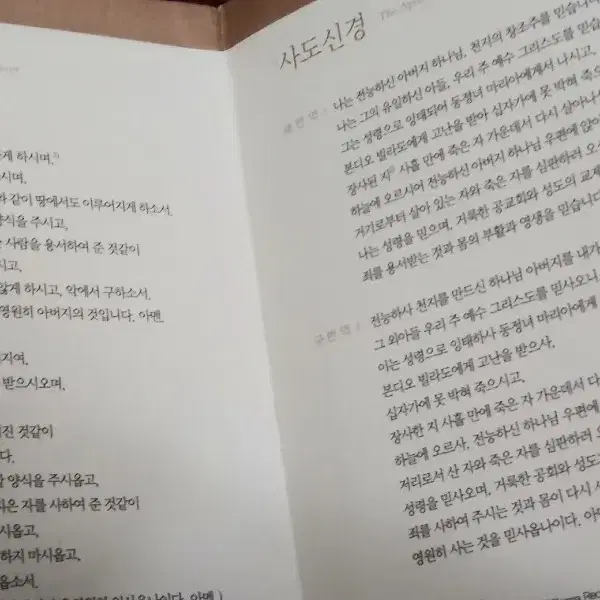 게 하시며,
시며,
와 같이 땅에서도 이루어지게 하소서.
양식을 주시고,
사람을 용서하여 준 것같이
시고,
않게 하시고, 악에서 구하소서.
영원히 아버지의 것입니다. 아멘.
지여,
받으시오며,
진 것같이
다.
양식을 주시옵고,
은 자를 사하여 준 것같이
시옵고,
하지 마시옵고,
옵소서.
사도신경 The Apos
새번역
나는 전능하신 아버지 하나님, 천지의 창조주를 믿습니다
나는 그의 유일하신 아들, 우리 주 예수 그리스도를 믿습니다
그는 성령으로 잉태되어 동정녀 마리아에게서 나시고,
본디오 빌라도에게 고난을 받아 십자가에 못 박혀 죽으
장사된 지 사흘 만에 죽은 자 가운데서 다시 살아나
하늘에 오르시어 전능하신 아버지 하나님 우편에 앉아
거기로부터 살아 있는 자와 죽은 자를 심판하러 오
나는 성령을 믿으며, 거룩한 공교회와 성도의 교제
죄를 용서받는 것과 몸의 부활과 영생을 믿습니다
구번역
전능하사 천지를 만드신 하나님 아버지를 내가
그 외아들 우리 주 예수 그리스도를 믿사오니,
이는 성령으로 잉태하사 동정녀 마리아에게
본디오 빌라도에게 고난을 받으사,
십자가에 못 박혀 죽으시고,
장사한 지 사흘 만에 죽은 자 가운데서 다
하늘에 오르사, 전능하신 하나님 우편에
저리로서 산 자와 죽은 자를 심판하러
성령을 믿사오며, 거룩한 공회와 성도
죄를 사하여 주시는 것과 몸이 다시
영원히 사는 것을 믿사옵나이다. 아